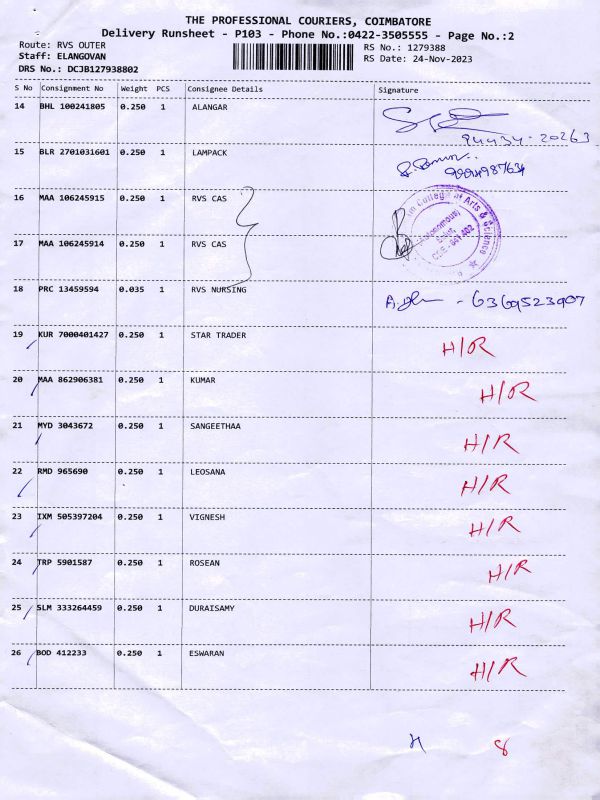 THE PROFESSIONAL COURIERS, COIMBATORE
Delivery Runsheet - P103 - Phone No.:0422-3505555 - Page No.:2
Route: RVS OUTER RS No.: 1279388
Staff: ELANGOVAN RS Date: 24-Nov-2023
DRS No.: DCJB127938802
S No Consignment No Weight PCS Consignee Details Signature
14 BHL 100241805 0.250 1 ALANGAR
94434-20263
15 BLR 2701031601 0.250 1 LAMPACK
16 MAA 106245915 0.250 1 RVS CAS
College of Arts & Science
17 MAA 106245914 0.250 1 RVS CAS
18 PRC 13459594 0.035 1 RVS NURSING - 6369523907
19 KUR 7000401427 0.250 1 STAR TRADER H/R
20 MAA 862906381 0.250 1 KUMAR H/R
21 MYD 3043672 0.250 1 SANGEETHAA H/R
22 RMD 965690 0.250 1 LEOSANA H/R
23 IXM 505397204 0.250 1 VIGNESH H/R
24 TRP 5901587 0.250 1 ROSEAN H/R
25 SLM 333264459 0.250 1 DURAISAMY H/R
26 BOD 412233 0.250 1 ESWARAN H/R
8